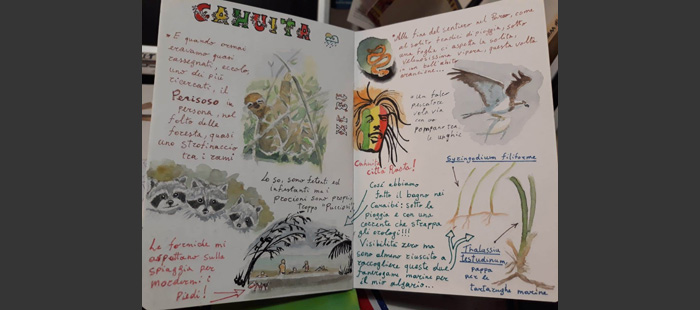 CAHUITA
* E quando ormai
eravamo quasi
rassegnati, eccolo,
uno dei più
ricercati, il
Perisoso in
persona, nel
folto della
foresta, quasi
uno strofinaccio
tra i rami
Lo so, sono fetenti ed
infestanti ma i
procioni sono proprio
troppo "Puccioni"
Le formiche mi
aspettano sulla
spiaggia per
mordermi i
Piedi!
* Alla fine del sentiero nel Parco, come
al solito fradici di pioggia, sotto
una foglia ci aspetta la solita
velenosissima vipera, questa volta
in un bell'abito
arancione...
* Un falco
pescatore
vola via
con un
pompano tra
le unghie
Cahuita
città Rasta!
Syringodium filiforme
Così abbiamo
fatto il bagno nei
Caraibi: sotto la
pioggia e con una
corrente che strappa
gli orologi!!!
Visibilità zero ma
sono almeno riuscito a
raccogliere queste due
fanerogame marine per
il mio algario...
Thalassia
testudinum,
pappa
per le
tartarughe marine